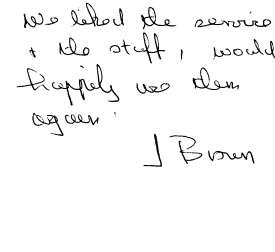 We liked the service
+ the staff, would
happily use them
again.
J Brown